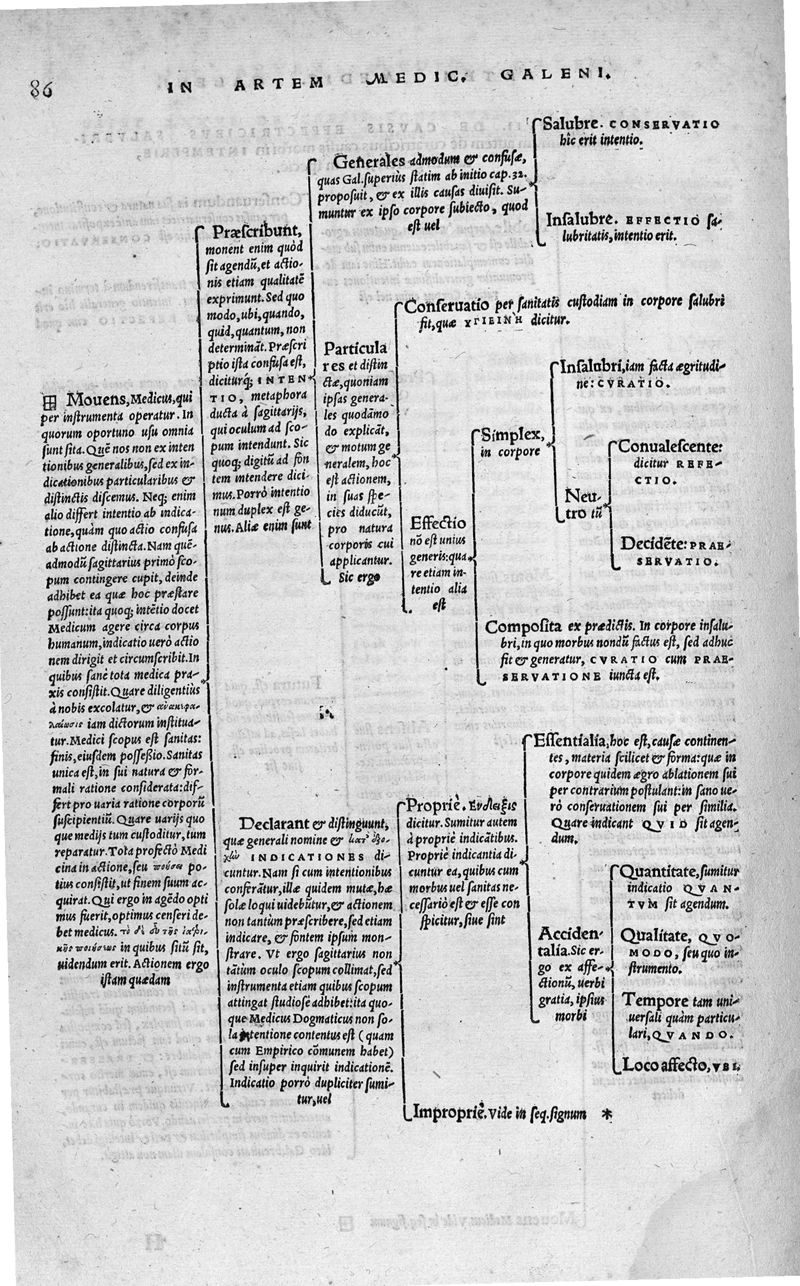 86
IN ARTEM MEDIC. GALENI.
Mouens, Medicus, qui
per instrumenta operatur. In
quorum oportuno usu omnia
sunt sita. Quē nos non ex inten
tionibus generalibus, sed ex in-
dicationibus particularibus &
distinctis discemus. Neq; enim
alio differt intentio ab indica-
tione, quàm quo actio confusa
ab actione distincta. Nam quē-
admodū sagittarius primò sco-
pum contingere cupit, deinde
adhibet ea quæ hoc præstare
possunt: ita quoq; intētio docet
Medicum agere circa corpus
humanum, indicatio uerò actio
nem dirigit et circumscribit. In
quibus sanè tota medica pra-
xis consistit. Quare diligentiùs
à nobis excolatur, & ἀνακεφα-
λαίωσις iam dictorum institua-
tur. Medici scopus est sanitas:
finis, eiusdem possessio. Sanitas
unica est, in sui natura & for-
mali ratione considerata: dif-
fert pro uaria ratione corporū
suscipientiū. Quare uarijs quo
que medijs tum custoditur, tum
reparatur. Tota profectò Medi
cina in actione, seu ποιήσει po-
tius consistit, ut finem suum ac-
quirat. Qui ergo in agēdo opti
mus fuerit, optimus censeri de-
bet medicus. τὸ δὲ εὖ τῆς ἰατρι-
κῆς ποιήσεως in quibus sitū sit,
uidendum erit. Actionem ergo
istam quædam
Præscribunt,
monent enim quòd
sit agendū, et actio-
nis etiam qualitatē
exprimunt. Sed quo
modo, ubi, quando,
quid, quantum, non
determināt. Præscri
ptio ista confusa est,
diciturq; INTEN-
TIO, metaphora
ducta à sagittarijs,
qui oculum ad sco-
pum intendunt. Sic
quoq; digitū ad fōn
tem intendere dici-
mus. Porrò intentio
num duplex est ge-
nus. Aliæ enim sunt
Generales admodum & confusæ,
quas Gal. superiùs statim ab initio cap. 32.
proposuit, & ex illis causas diuisit. Su-
muntur ex ipso corpore subiecto, quod
est uel
Salubre. CONSERVATIO
hîc erit intentio.
Insalubre. EFFECTIO sa-
lubritatis, intentio erit.
Particula
res et distin
ctæ, quoniam
ipsas genera-
les quodāmo
do explicāt,
& motum ge
neralem, hoc
est actionem,
in suas spe-
cies diducūt,
pro natura
corporis cui
applicantur.
Sic ergo
Conseruatio per sanitatis custodiam in corpore salubri
fit, quæ ΥΓΙΕΙΝῊ dicitur.
Effectio
nō est unius
generis: qua
re etiam in-
tentio alia
est
Simplex,
in corpore
Insalubri, iam facta ægritudi-
ne: CVRATIO.
Neu-
tro tū
Conualescente:
dicitur REFE-
CTIO.
Decidēte: PRAE-
SERVATIO.
Composita ex prædictis. In corpore insalu-
bri, in quo morbus nondū factus est, sed adhuc
fit & generatur, CVRATIO cum PRAE-
SERVATIONE iuncta est.
Declarant & distinguunt,
quæ generali nomine & κατ' ἐξο-
χὼ INDICATIONES di-
cuntur. Nam si cum intentionibus
conferātur, illæ quidem mutæ, hæ
solæ loqui uidebūtur, & actionem
non tantùm præscribere, sed etiam
indicare, & fontem ipsum mon-
strare. Vt ergo sagittarius non
tātùm oculo scopum collimat, sed
instrumenta etiam quibus scopum
attingat studiosè adhibet: ita quo-
que Medicus Dogmaticus non so-
la intentione contentus est (quam
cum Empirico cōmunem habet)
sed insuper inquirit indicationē.
Indicatio porrò dupliciter sumi-
tur, uel
Propriè. Ἔνδειξις
dicitur. Sumitur autem
à propriè indicātibus.
Propriè indicantia di-
cuntur ea, quibus cum
morbus uel sanitas ne-
cessariò est & esse con
spicitur, siue sint
Essentialia, hoc est, causæ continen-
tes, materia scilicet & forma: quæ in
corpore quidem ægro ablationem sui
per contrarium postulant: in sano ue-
rò conseruationem sui per similia.
Quare indicant QVID sit agen-
dum.
Acciden-
talia. Sic er-
go ex affe-
ctionū, uerbi
gratia, ipsius
morbi
Quantitate, sumitur
indicatio QVAN-
TVM sit agendum.
Qualitate, QVO-
MODO, seu quo in-
strumento.
Tempore tam uni-
uersali quàm particu-
lari, QVANDO.
Loco affecto, VBI.
Impropriè. Vide in seq. signum *